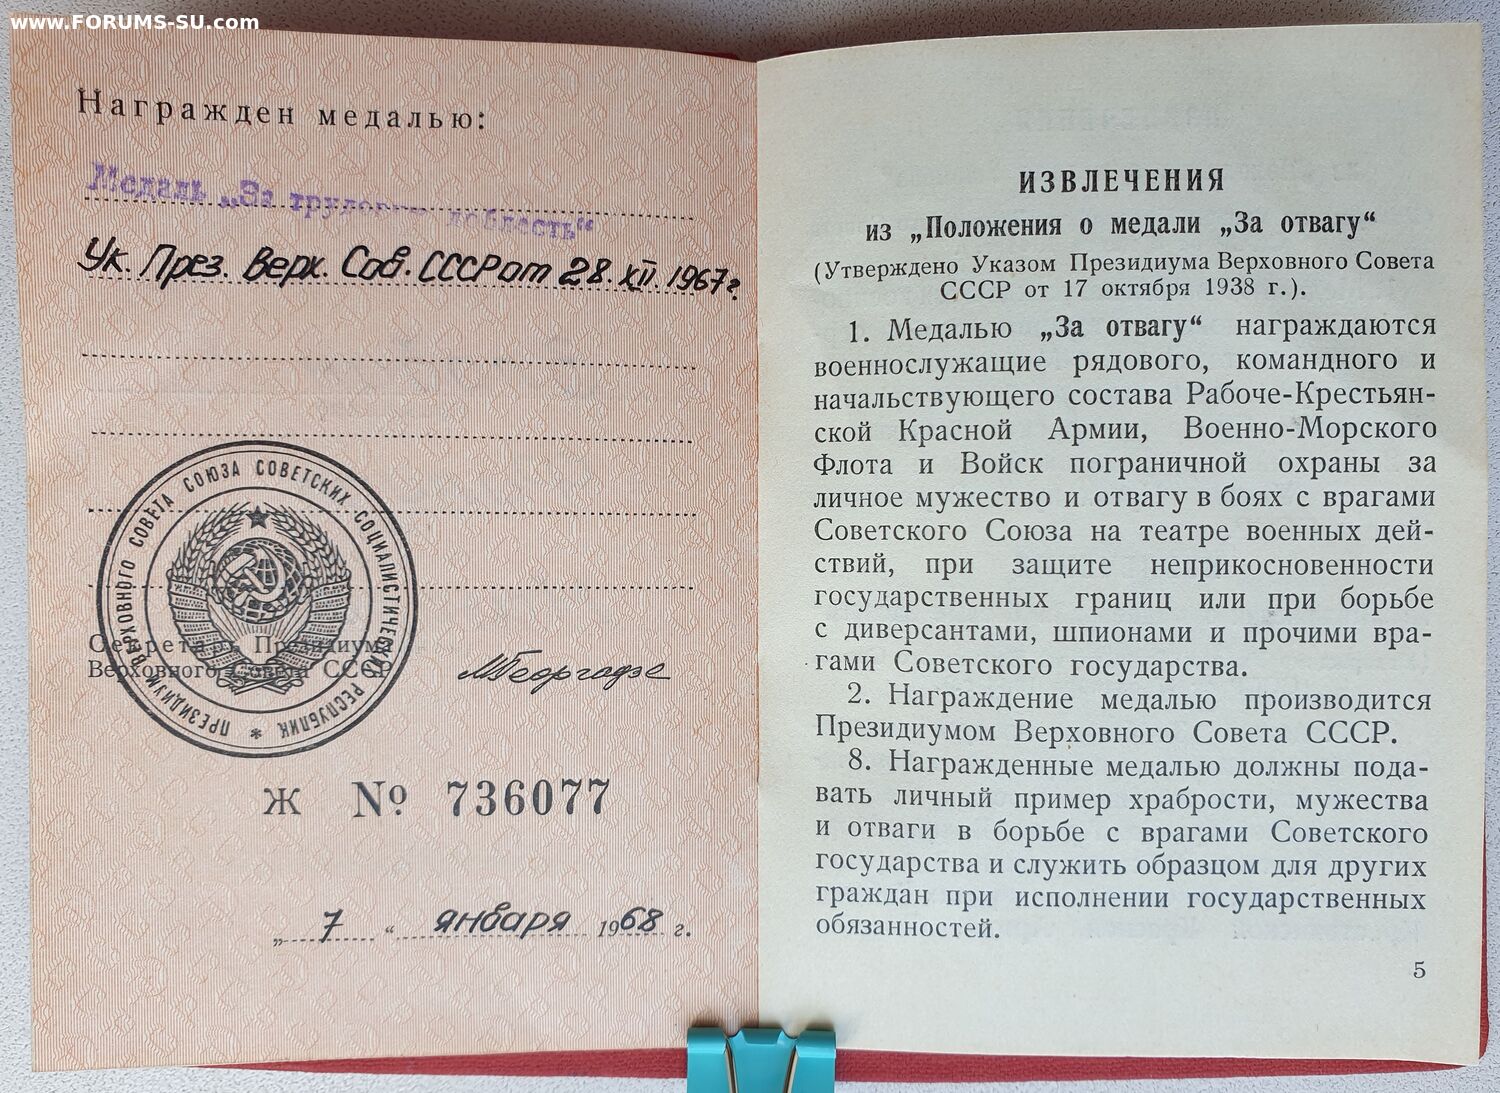 www.FORUMS-SU.com
Награжден медалью:
Медаль „За трудовую доблесть“
Ук. През. Верх. Сов. СССР от 28.XII.1967г.
ПРЕЗИДИУМ ВЕРХОВНОГО СОВЕТА СОЮЗА СОВЕТСКИХ СОЦИАЛИСТИЧЕСКИХ РЕСПУБЛИК *
Секретарь Президиума
Верховного Совета СССР
МГеоргадзе
Ж № 736077
„ 7 “ января 1968 г.
ИЗВЛЕЧЕНИЯ
из „Положения о медали „За отвагу“
(Утверждено Указом Президиума Верховного Совета
СССР от 17 октября 1938 г.).
1. Медалью „За отвагу“ награждаются
военнослужащие рядового, командного и
начальствующего состава Рабоче-Крестьян-
ской Красной Армии, Военно-Морского
Флота и Войск пограничной охраны за
личное мужество и отвагу в боях с врагами
Советского Союза на театре военных дей-
ствий, при защите неприкосновенности
государственных границ или при борьбе
с диверсантами, шпионами и прочими вра-
гами Советского государства.
2. Награждение медалью производится
Президиумом Верховного Совета СССР.
8. Награжденные медалью должны пода-
вать личный пример храбрости, мужества
и отваги в борьбе с врагами Советского
государства и служить образцом для других
граждан при исполнении государственных
обязанностей.
5